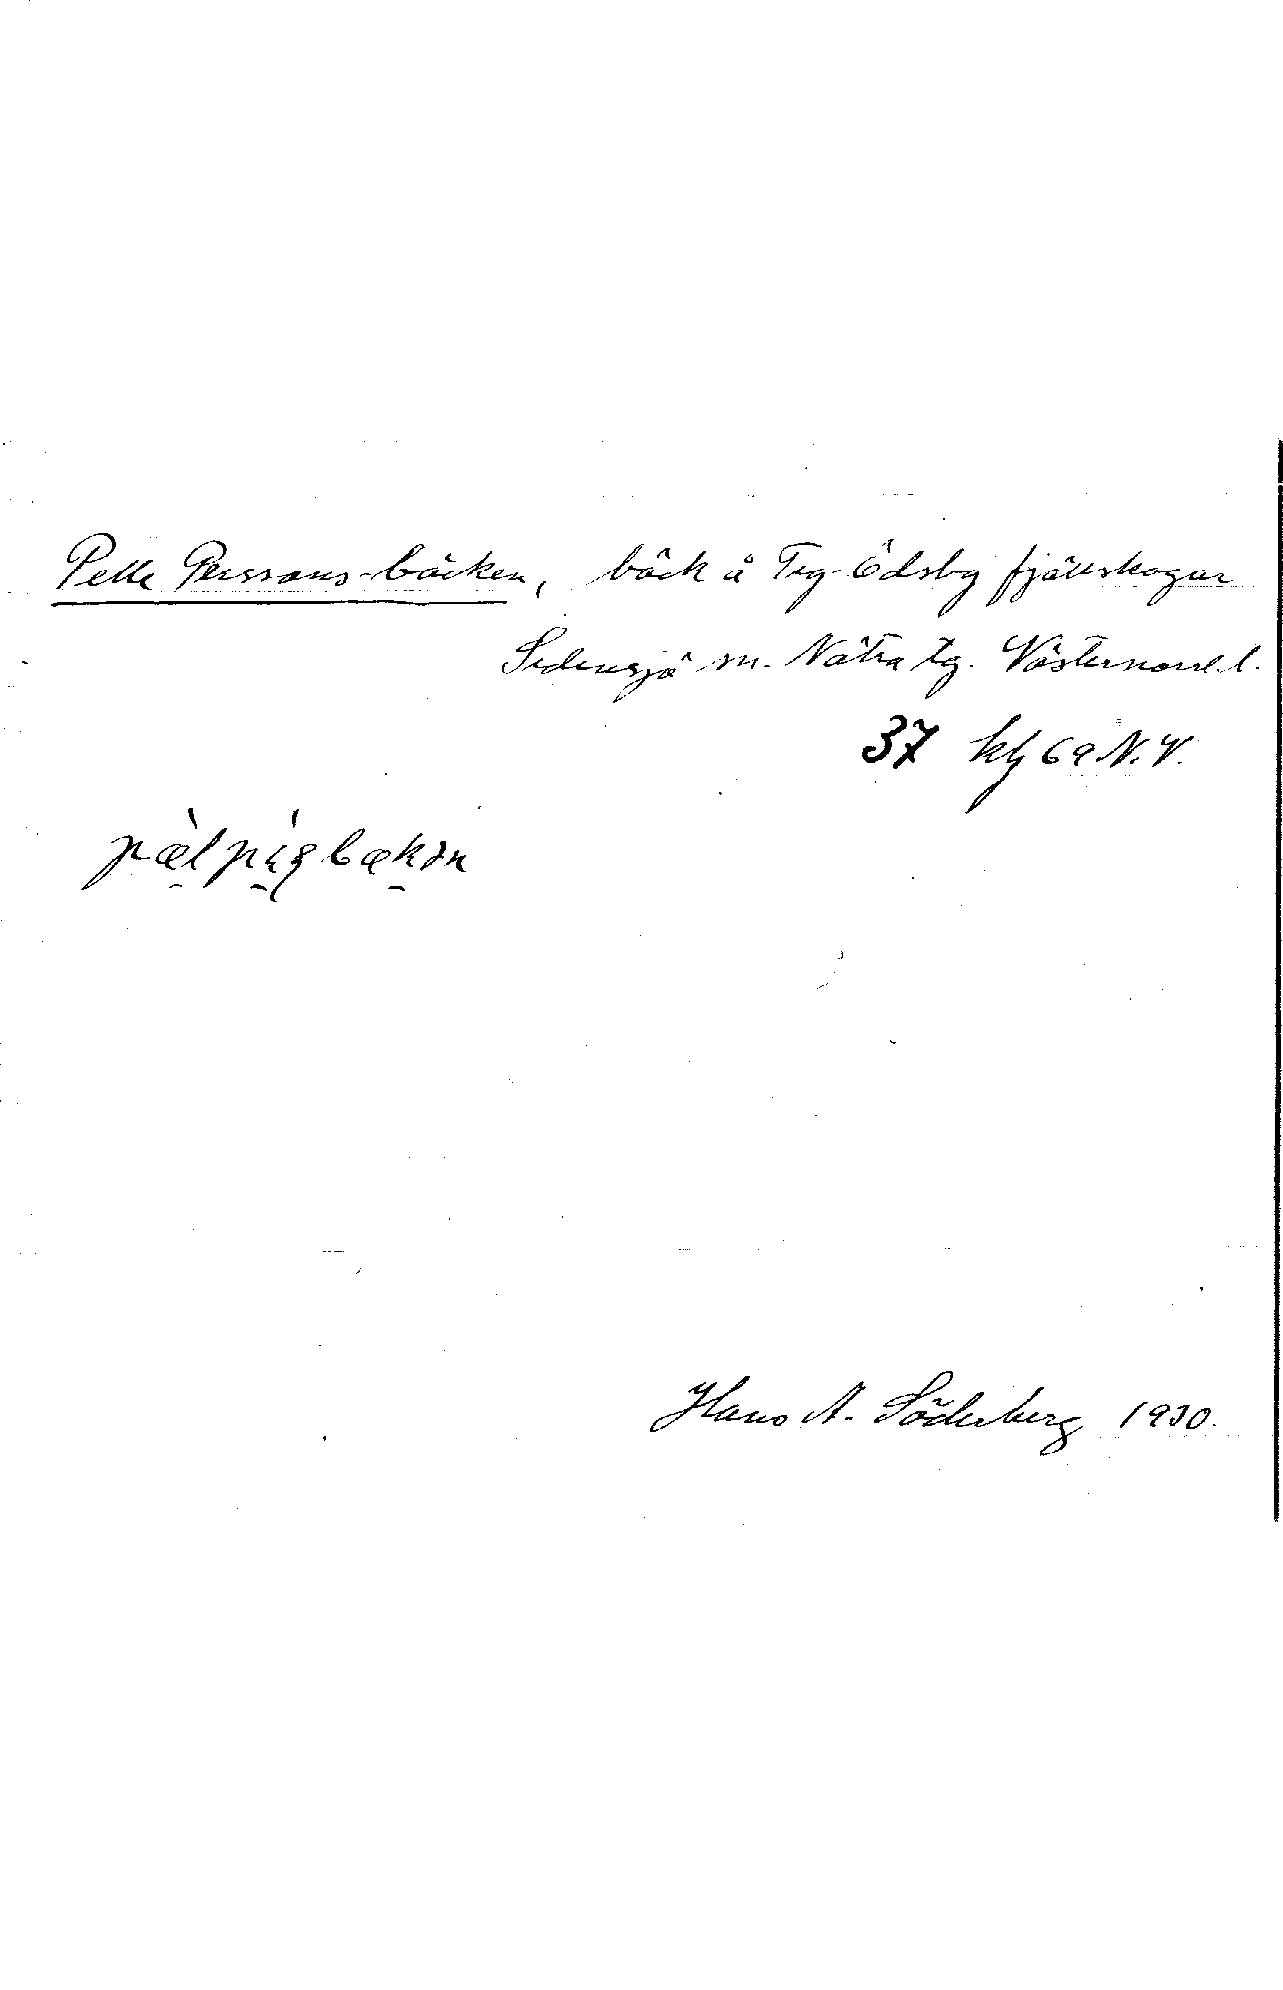 Pelle Perssons-bäcken, bäck å Trg-Ödsby fjällskogar
Sidensjö sn. Nätra tg. Västernorrl. l.
37 hbg 69 N.V.
pælpæṣbækən
Hans A. Söderberg 1930.